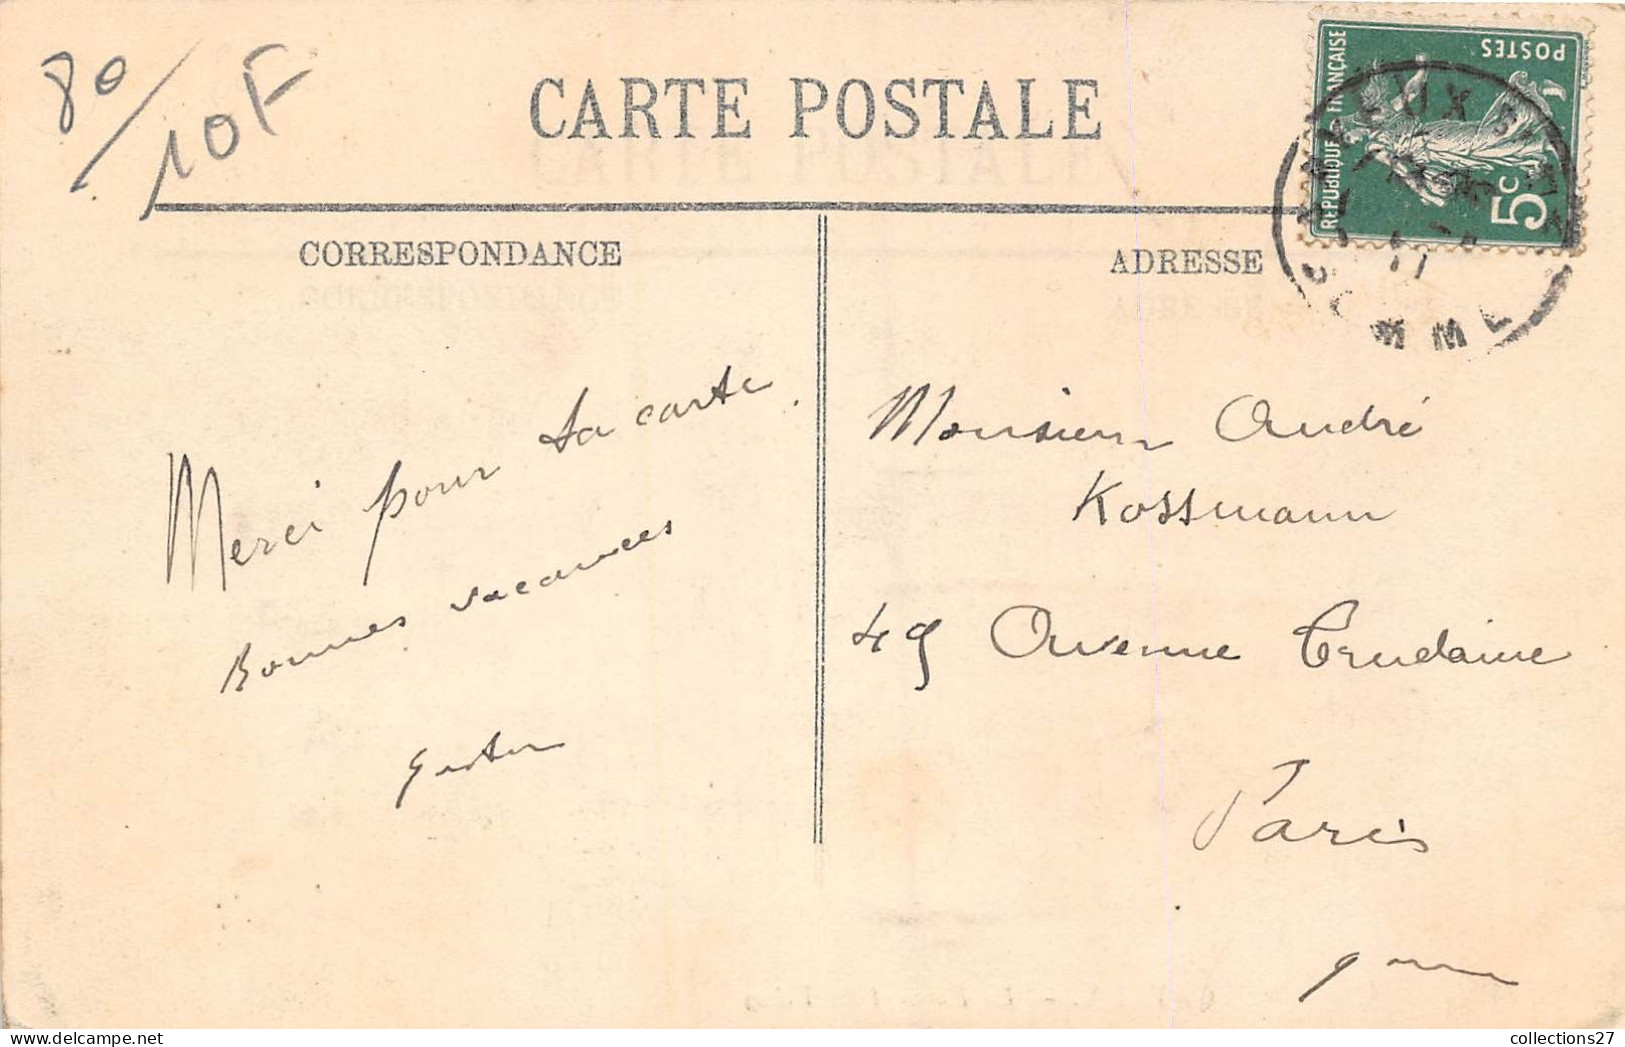 80/10F
CARTE POSTALE
CORRESPONDANCE
ADRESSE
REPUBLIQUE FRANÇAISE
POSTES
5c
SOMME
Merci pour ta carte.
Bonnes vacances
Gaston
Monsieur André
Kossmann
49 Avenue Trudaine
Paris
collections27